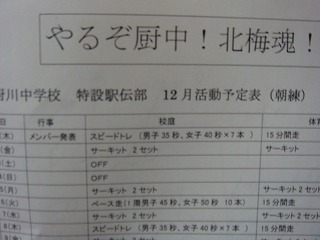 やるぞ厨中！北梅魂！
厨川中学校 特設駅伝部 12月活動予定表（朝練）
日 行事 校庭 体
(木) メンバー発表 スピードトレ（男子35秒、女子40秒×7本） 15分間走
(金) サーキット 2セット サーキット
(土) OFF
(日) OFF
5(月) サーキット 2セット 15分間走
6(火) ペース走(1周男子45秒、女子50秒 10本) 15分間走
7(水) サーキット 2セット 15分間走
8(木) スピードトレ（男子35秒、女子40秒×7本 15分間走
サーキット 2セット